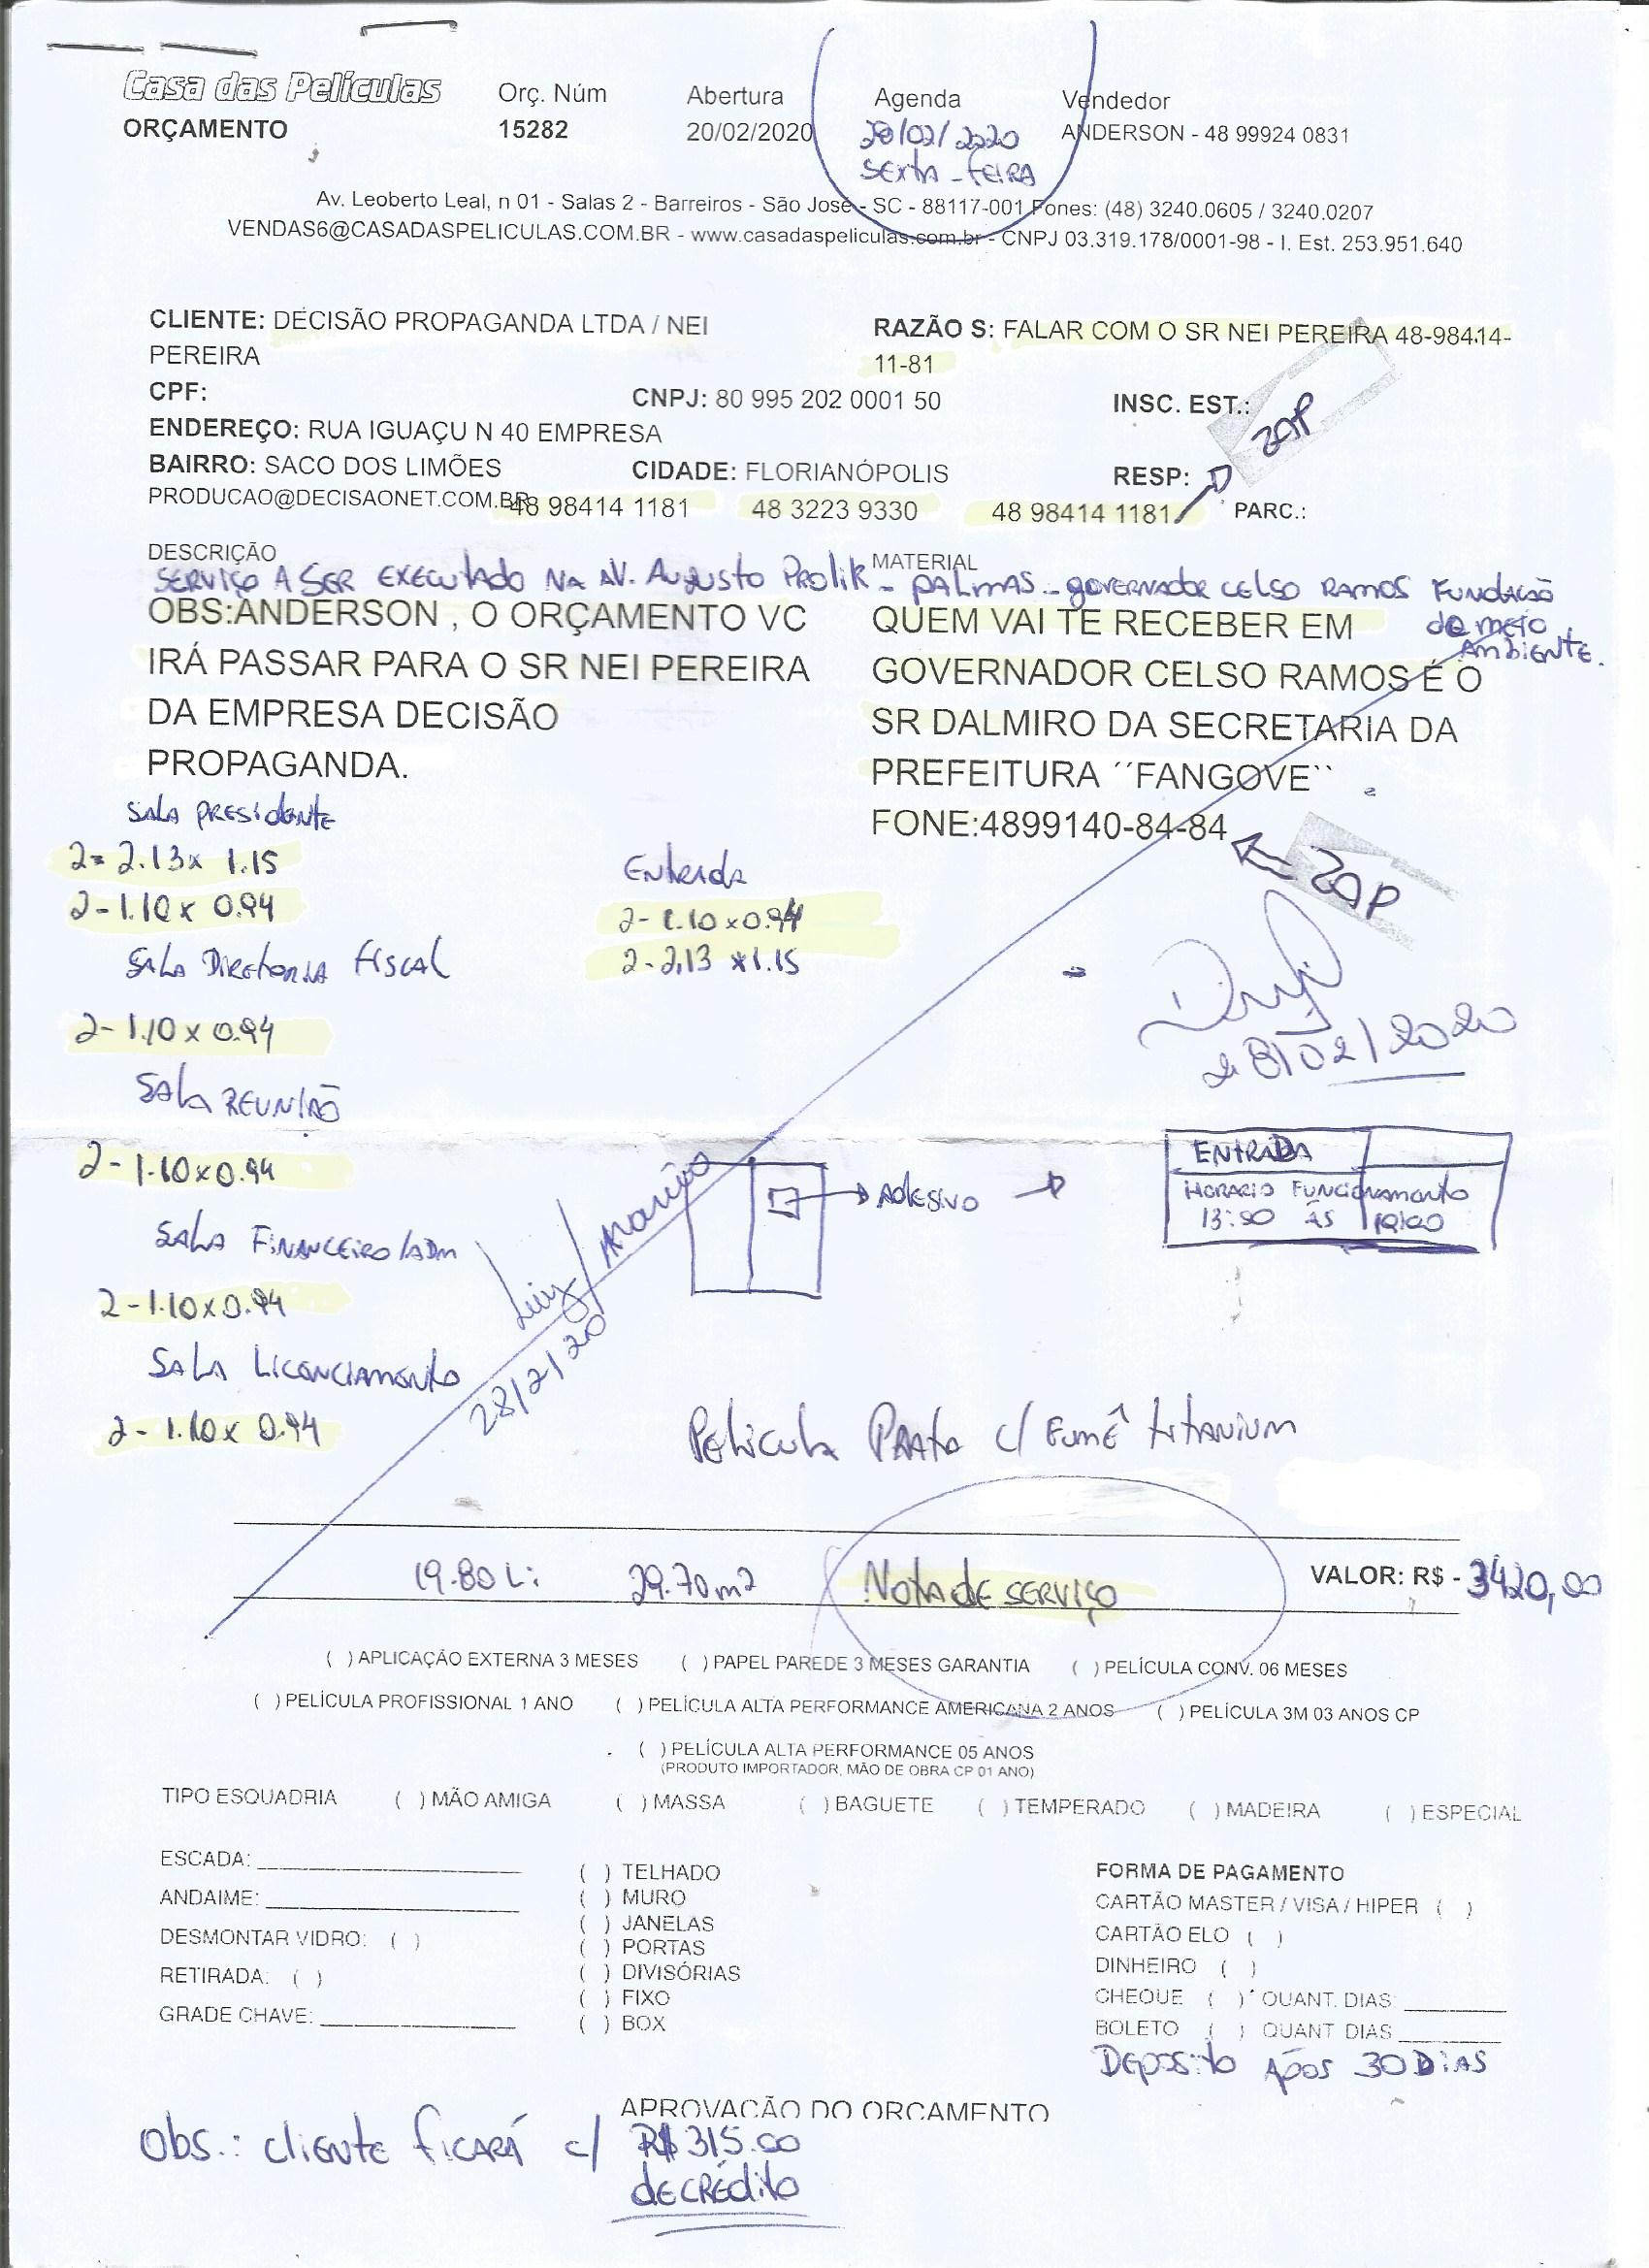 Casa das Películas Orç. Núm Abertura Agenda Vendedor
ORÇAMENTO 15282 20/02/2020 28/02/2020 ANDERSON - 48 99924 0831
SEXTA - FEIRA
Av. Leoberto Leal, n 01 - Salas 2 - Barreiros - São José - SC - 88117-001 Fones: (48) 3240.0605 / 3240.0207
VENDAS6@CASADASPELICULAS.COM.BR - www.casadaspeliculas.com.br - CNPJ 03.319.178/0001-98 - I. Est. 253.951.640
CLIENTE: DECISÃO PROPAGANDA LTDA / NEI
PEREIRA
RAZÃO S: FALAR COM O SR NEI PEREIRA 48-98414-
11-81
CPF: CNPJ: 80 995 202 0001 50 INSC. EST.:
ZAP
ENDEREÇO: RUA IGUAÇU N 40 EMPRESA
BAIRRO: SACO DOS LIMÕES CIDADE: FLORIANÓPOLIS RESP:
PRODUCAO@DECISAONET.COM.BR 48 98414 1181 48 3223 9330 48 98414 1181 PARC.:
DESCRIÇÃO MATERIAL
SERVIÇO A SER EXECUTADO NA AV. AUGUSTO PROLIK - PALMAS - GOVERNADOR CELSO RAMOS FUNDAÇÃO
do meio
Ambiente.
OBS:ANDERSON , O ORÇAMENTO VC
IRÁ PASSAR PARA O SR NEI PEREIRA
DA EMPRESA DECISÃO
PROPAGANDA.
QUEM VAI TE RECEBER EM
GOVERNADOR CELSO RAMOS É O
SR DALMIRO DA SECRETARIA DA
PREFEITURA ´´FANGOVE``
FONE:4899140-84-84
ZAP
SALA PRESIDENTE
2= 2.13x 1.15
2-1.10x 0.94
Entrada
2- 1.10x0.94
2-2,13 x1.15
SALA DIRETORIA FISCAL
2-1.10x0.94
28/02/2020
SALA REUNIÃO
2-1.10x0.94
ADESIVO
ENTRADA
HORARIO FUNCIONAMENTO
13:00 ÀS 19:00
SALA FINANCEIRO/ADM
2-1.10x0.94
Luiz/
28/2/20
SALA LICENCIAMENTO
2-1.10x 0.94
PELICULA PRATA C/ FUMÊ TITANIUM
19.80 Li 29.70m2 NOTA DE SERVIÇO VALOR: R$ - 3420,00
( ) APLICAÇÃO EXTERNA 3 MESES ( ) PAPEL PAREDE 3 MESES GARANTIA ( ) PELÍCULA CONV. 06 MESES
( ) PELÍCULA PROFISSIONAL 1 ANO ( ) PELÍCULA ALTA PERFORMANCE AMERICANA 2 ANOS ( ) PELÍCULA 3M 03 ANOS CP
( ) PELÍCULA ALTA PERFORMANCE 05 ANOS
(PRODUTO IMPORTADOR, MÃO DE OBRA CP 01 ANO)
TIPO ESQUADRIA ( ) MÃO AMIGA ( ) MASSA ( ) BAGUETE ( ) TEMPERADO ( ) MADEIRA ( ) ESPECIAL
ESCADA:
ANDAIME:
DESMONTAR VIDRO: ( )
RETIRADA: ( )
GRADE CHAVE:
( ) TELHADO
( ) MURO
( ) JANELAS
( ) PORTAS
( ) DIVISÓRIAS
( ) FIXO
( ) BOX
FORMA DE PAGAMENTO
CARTÃO MASTER / VISA / HIPER ( )
CARTÃO ELO ( )
DINHEIRO ( )
CHEQUE ( ) QUANT. DIAS:
BOLETO ( ) QUANT DIAS
DEPOSITO APÓS 30 DIAS
APROVAÇÃO DO ORÇAMENTO
Obs.: CLIENTE FICARÁ c/ R$ 315.00
DE CRÉDITO